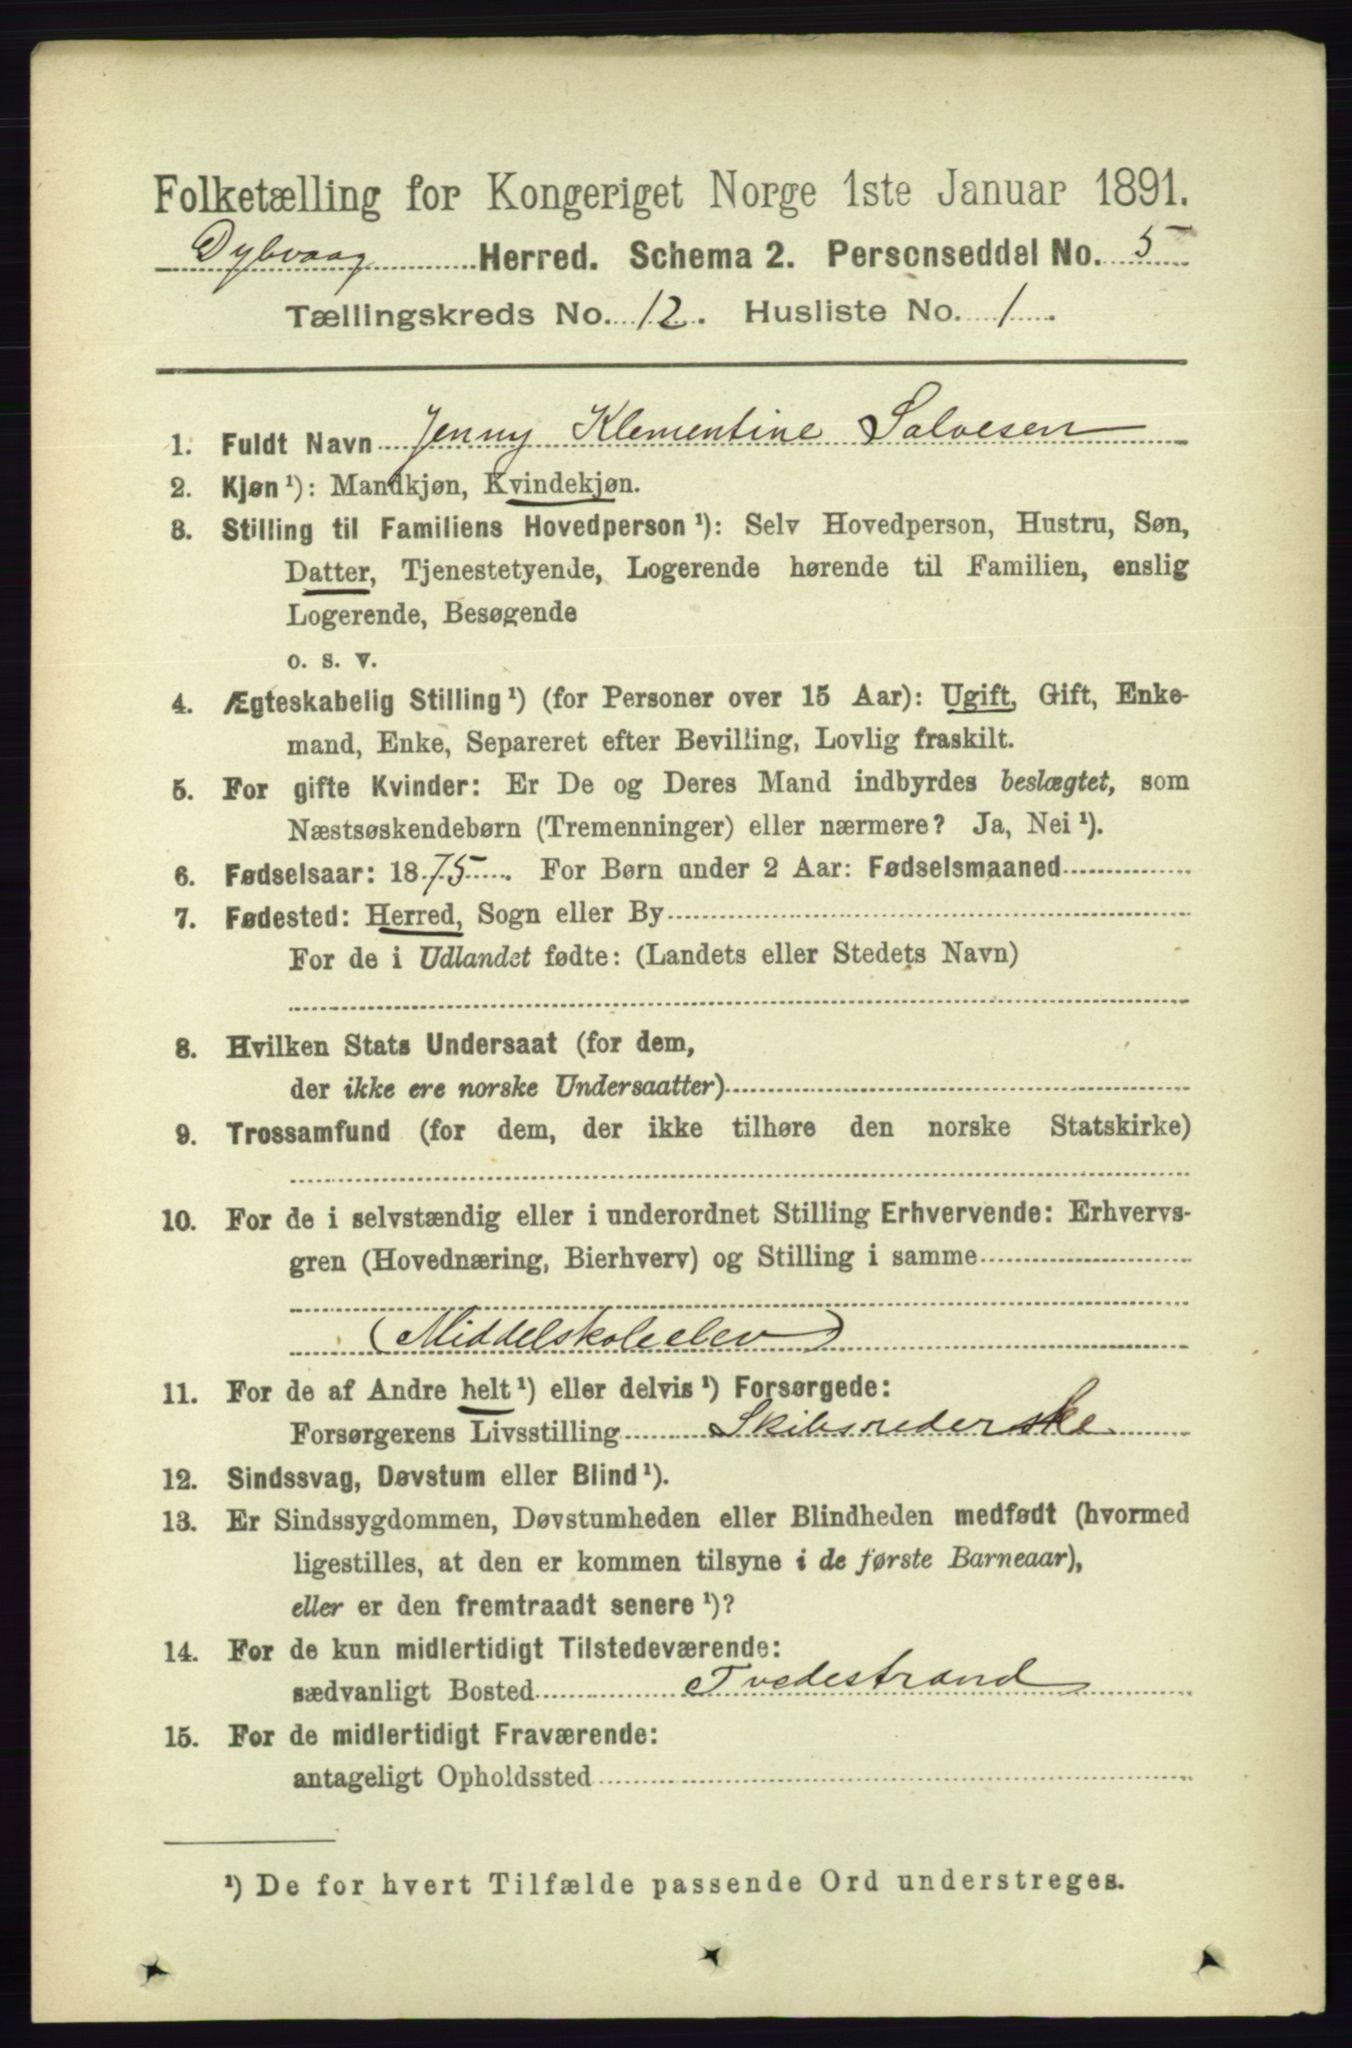 Folketælling for Kongeriget Norge 1ste Januar 1891.
Dybvaag Herred. Schema 2. Personseddel No. 5
Tællingskreds No. 12. Husliste No. 1.
1. Fuldt Navn Jenny Klementine Salvesen
2. Kjøn¹): Mandkjøn, Kvindekjøn.
3. Stilling til Familiens Hovedperson¹): Selv Hovedperson, Hustru, Søn,
Datter, Tjenestetyende, Logerende hørende til Familien, enslig
Logerende, Besøgende
o. s. v.
4. Ægteskabelig Stilling¹) (for Personer over 15 Aar): Ugift, Gift, Enke-
mand, Enke, Separeret efter Bevilling, Lovlig fraskilt.
5. For gifte Kvinder: Er De og Deres Mand indbyrdes beslægtet, som
Næstsøskendebørn (Tremenninger) eller nærmere? Ja, Nei¹).
6. Fødselsaar: 1875. For Børn under 2 Aar: Fødselsmaaned
7. Fødested: Herred, Sogn eller By
For de i Udlandet fødte: (Landets eller Stedets Navn)
8. Hvilken Stats Undersaat (for dem,
der ikke ere norske Undersaatter)
9. Trossamfund (for dem, der ikke tilhøre den norske Statskirke)
10. For de i selvstændig eller i underordnet Stilling Erhvervende: Erhvervs-
gren (Hovednæring, Bierhverv) og Stilling i samme
(Middelskoleelev)
11. For de af Andre helt¹) eller delvis¹) Forsørgede:
Forsørgerens Livsstilling Skibsrederske
12. Sindssvag, Døvstum eller Blind¹).
13. Er Sindssygdommen, Døvstumheden eller Blindheden medfødt (hvormed
ligestilles, at den er kommen tilsyne i de første Barneaar),
eller er den fremtraadt senere¹)?
14. For de kun midlertidigt Tilstedeværende:
sædvanligt Bosted Tvedestrand
15. For de midlertidigt Fraværende:
antageligt Opholdssted
¹) De for hvert Tilfælde passende Ord understreges.